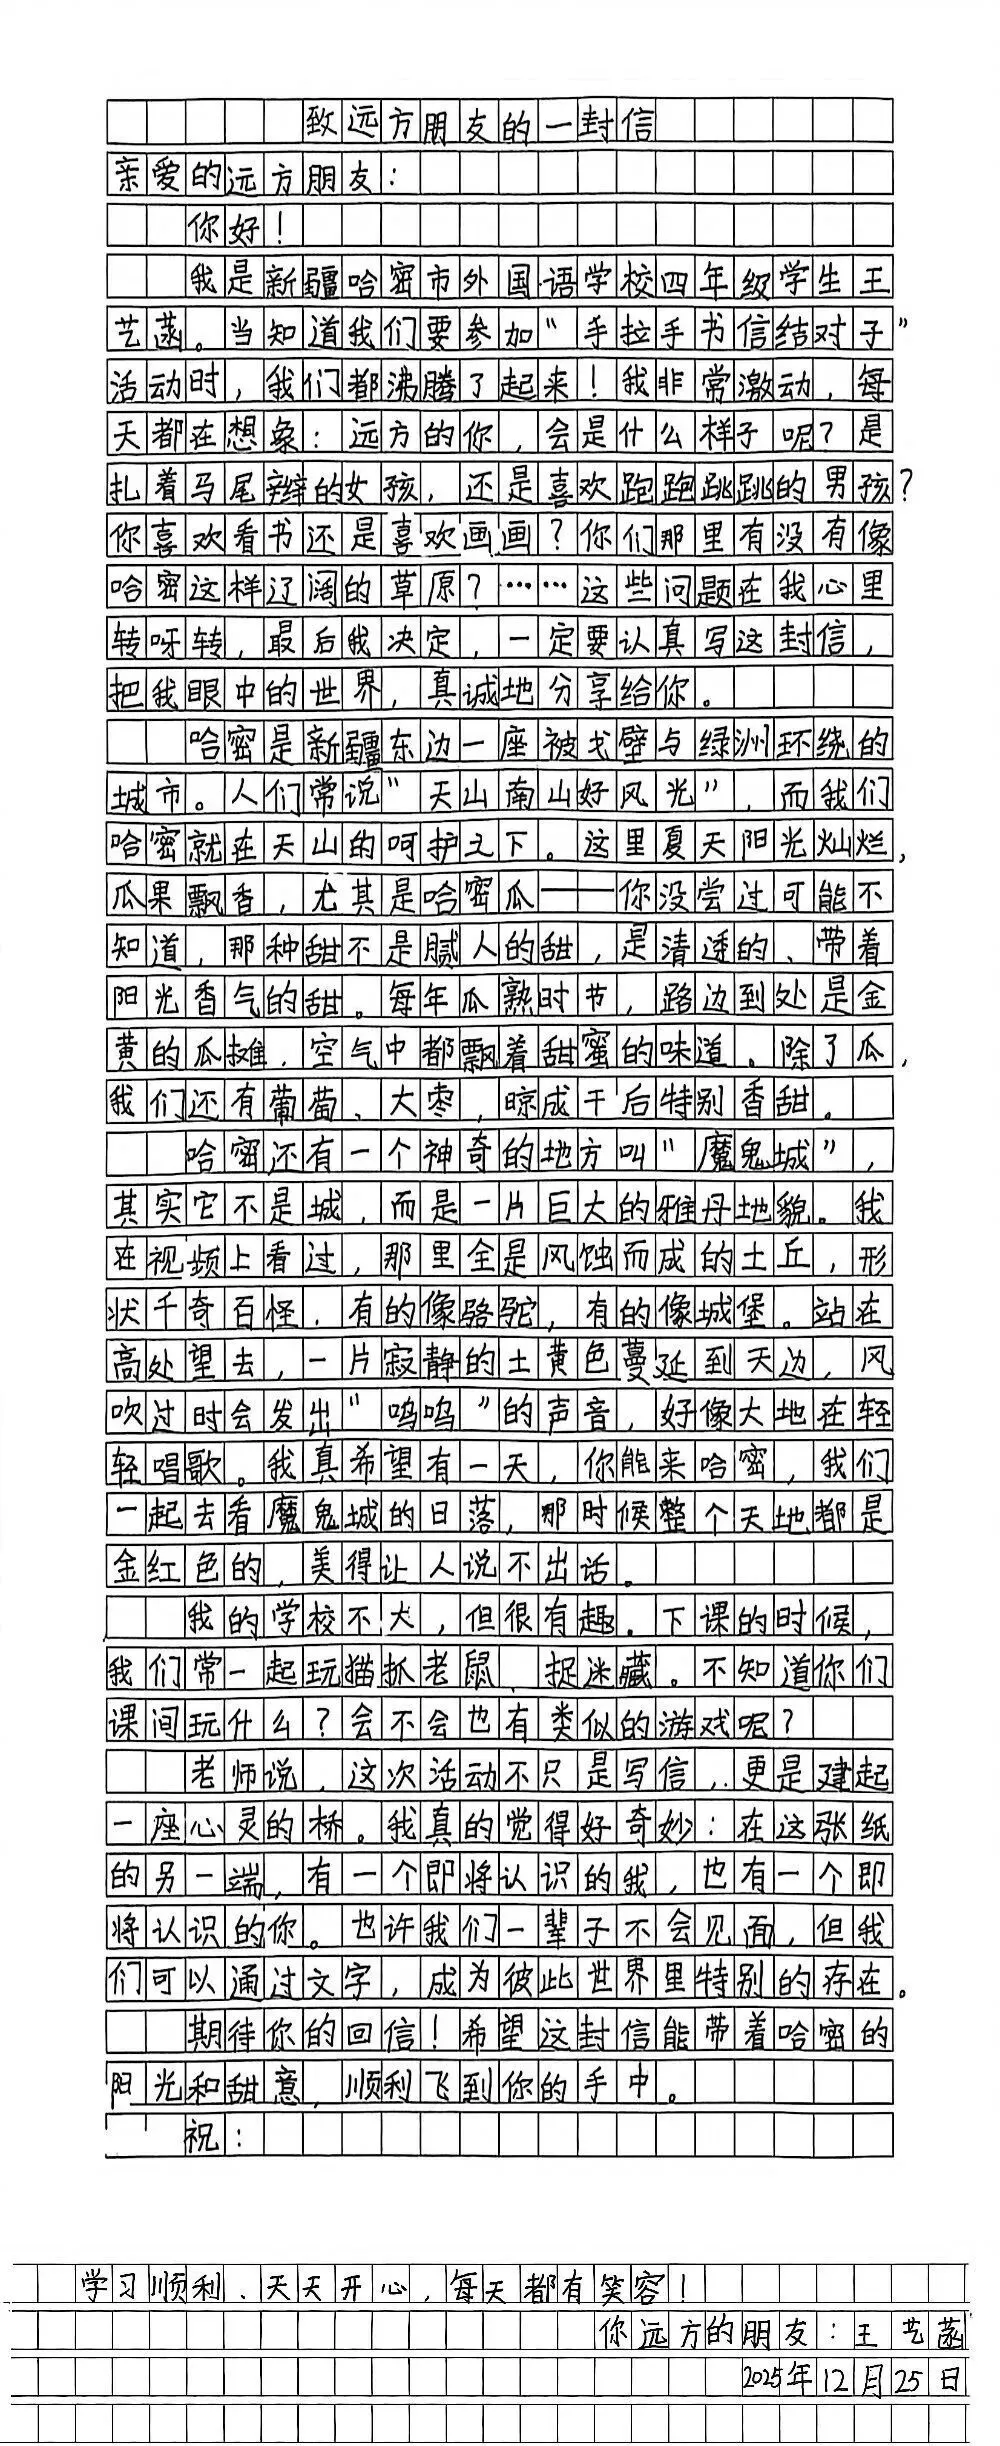 致远方朋友的一封信
亲爱的远方朋友：
你好！
我是新疆哈密市外国语学校四年级学生王
艺菡。当知道我们要参加“手拉手书信结对子”
活动时，我们都沸腾了起来！我非常激动，每
天都在想象：远方的你，会是什么样子呢？是
扎着马尾辫的女孩，还是喜欢跑跑跳跳的男孩？
你喜欢看书还是喜欢画画？你们那里有没有像
哈密这样辽阔的草原？……这些问题在我心里
转呀转，最后我决定，一定要认真写这封信，
把我眼中的世界，真诚地分享给你。
哈密是新疆东边一座被戈壁与绿洲环绕的
城市。人们常说“天山南山好风光”，而我们
哈密就在天山的呵护之下。这里夏天阳光灿烂，
瓜果飘香，尤其是哈密瓜——你没尝过可能不
知道，那种甜不是腻人的甜，是清透的、带着
阳光香气的甜。每年瓜熟时节，路边到处是金
黄的瓜摊，空气中都飘着甜蜜的味道。除了瓜，
我们还有葡萄、大枣，晾成干后特别香甜。
哈密还有一个神奇的地方叫“魔鬼城”，
其实它不是城，而是一片巨大的雅丹地貌。我
在视频上看过，那里全是风蚀而成的土丘，形
状千奇百怪，有的像骆驼，有的像城堡。站在
高处望去，一片寂静的土黄色蔓延到天边，风
吹过时会发出“呜呜”的声音，好像大地在轻
轻唱歌。我真希望有一天，你能来哈密，我们
一起去看魔鬼城的日落，那时候整个天地都是
金红色的，美得让人说不出话。
我的学校不大，但很有趣。下课的时候，
我们常一起玩猫抓老鼠、捉迷藏。不知道你们
课间玩什么？会不会也有类似的游戏呢？
老师说，这次活动不只是写信，更是建起
一座心灵的桥。我真的觉得好奇妙：在这张纸
的另一端，有一个即将认识的我，也有一个即
将认识的你。也许我们一辈子不会见面，但我
们可以通过文字，成为彼此世界里特别的存在。
期待你的回信！希望这封信能带着哈密的
阳光和甜意，顺利飞到你的手中。
祝：
学习顺利、天天开心，每天都有笑容！
你远方的朋友：王艺菡
2025年12月25日